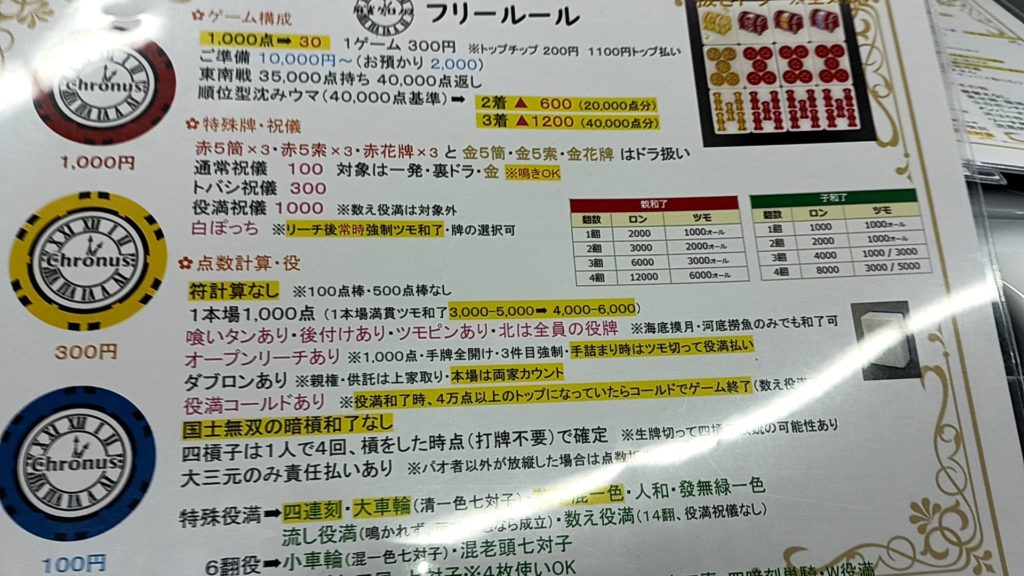 フリールール
✿ゲーム構成
1,000点➡30 1ゲーム 300円 ※トップチップ 200円 1100円トップ払い
ご準備 10,000円~(お預かり 2,000)
東南戦 35,000点持ち 40,000点返し
順位型沈みウマ(40,000点基準)➡ 2着▲ 600 (20,000点分)
3着▲1200 (40,000点分)
✿特殊牌・祝儀
赤5筒×3・赤5索×3・赤花牌×3 と 金5筒・金5索・金花牌 はドラ扱い
通常祝儀 100 対象は一発・裏ドラ・金 ※鳴きOK
トバシ祝儀 300
役満祝儀 1000 ※数え役満は対象外
白ぽっち ※リーチ後常時強制ツモ和了・牌の選択可
親和了
翻数 ロン ツモ
1翻 2000 1000オール
2翻 3000 2000オール
3翻 6000 3000オール
4翻 12000 6000オール
子和了
翻数 ロン ツモ
1翻 1000 1000オール
2翻 2000 1000オール
3翻 4000 1000 / 3000
4翻 8000 3000 / 5000
✿点数計算・役
符計算なし ※100点棒・500点棒なし
1本場1,000点 (1本場満貫ツモ和了3,000-5,000➡ 4,000-6,000)
喰いタンあり・後付けあり・ツモピンあり・北は全員の役牌 ※海底摸月・河底撈魚のみでも和了可
オープンリーチあり ※1,000点・手牌全開け・3件目強制・手詰まり時はツモ切って役満払い
ダブロンあり ※親権・供託は上家取り・本場は両家カウント
役満コールドあり ※役満和了時、4万点以上のトップになっていたらコールドでゲーム終了(数え役満
国士無双の暗槓和了なし
四槓子は1人で4回、槓をした時点(打牌不要)で確定 ※生牌切って四槓 の可能性あり
大三元のみ責任払いあり ※パオ者以外が放縦した場合は点数
特殊役満➡四連刻・大車輪(清一色七対子) 混一色・人和・發無緑一色
流し役満(鳴かれず、 なら成立)・数え役満(14翻、役満祝儀なし)
6翻役➡小車輪(混一色七対子)・混老頭七対子
※4枚使いOK
四暗刻単騎・W役満
Chronus
1,000円
Chronus
300円
Chronus
100円